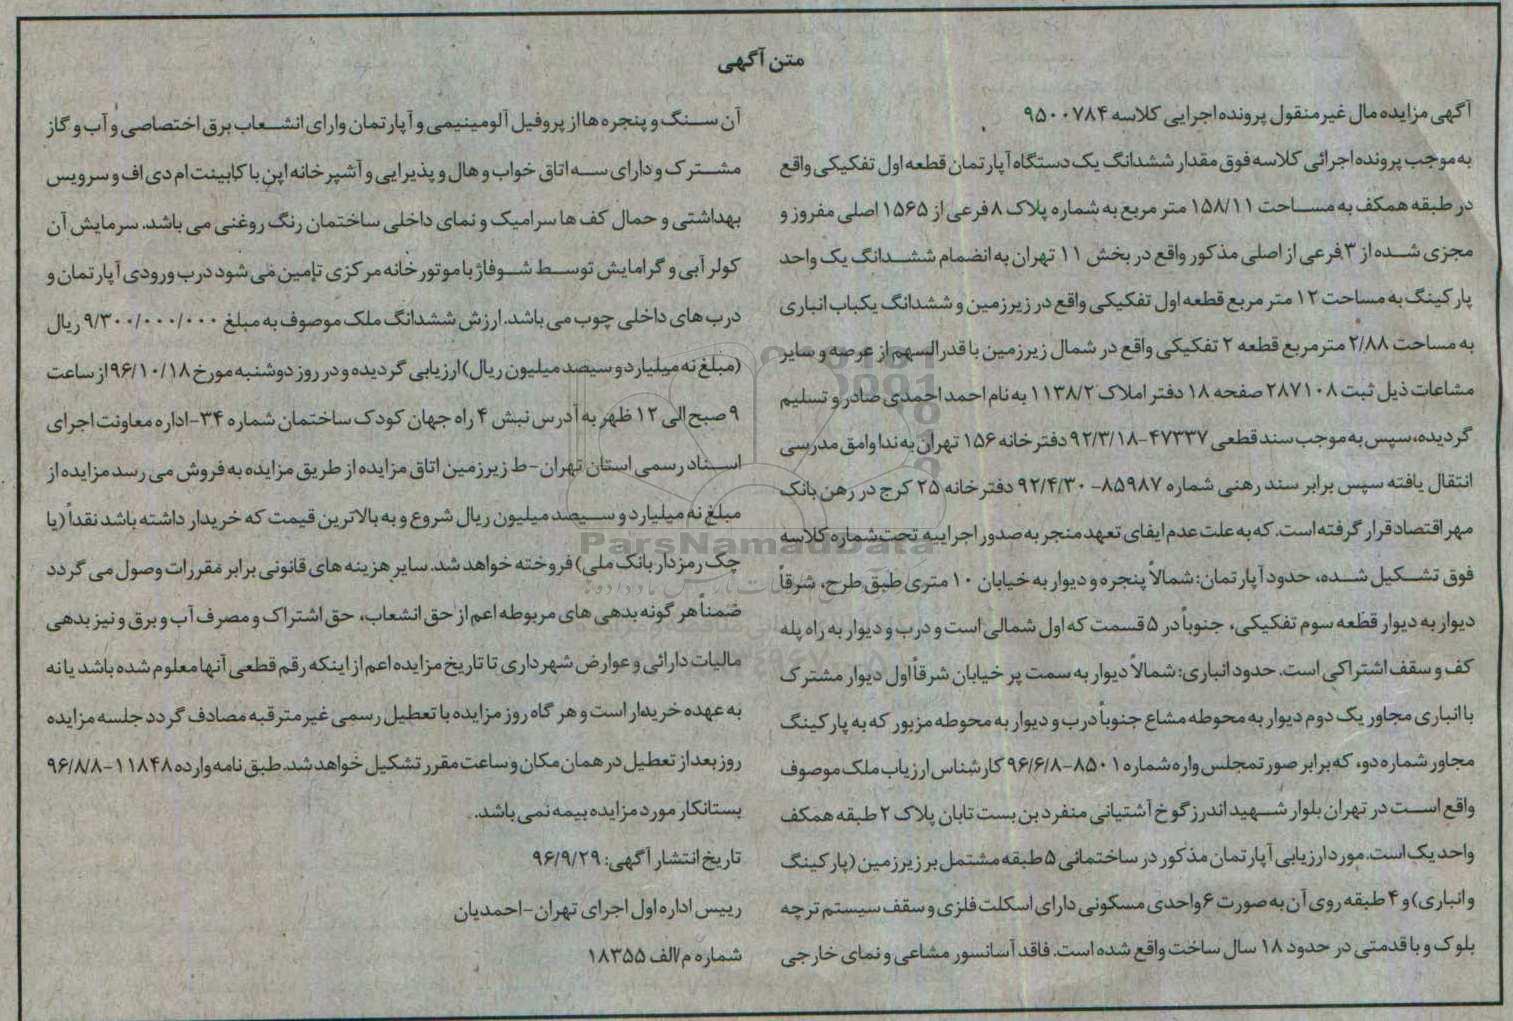 متن آگهی
آگهی مزایده مال غیر منقول پرونده اجرایی کلاسه ۹۵۰۰۷۸۴
به موجب پرونده اجرائی کلاسه فوق مقدار ششدانگ یک دستگاه آپارتمان قطعه اول تفکیکی واقع
در طبقه همکف به مساحت ۱۵۸/۱۱ متر مربع به شماره پلاک ۸ فرعی از ۱۵۶۵ اصلی مفروز و
مجزی شده از ۳ فرعی از اصلی مذکور واقع در بخش ۱۱ تهران به انضمام ششدانگ یک واحد
پارکینگ به مساحت ۱۲ متر مربع قطعه اول تفکیکی واقع در زیرزمین و ششدانگ یکباب انباری
به مساحت ۲/۸۸ مترمربع قطعه ۲ تفکیکی واقع در شمال زیرزمین با قدرالسهم از عرصه و سایر
مشاعات ذیل ثبت ۲۸۷۱۰۸ صفحه ۱۸ دفتر املاک ۱۱۳۸/۲ به نام احمد احمدی صادر و تسلیم
گردیده، سپس به موجب سند قطعی ۴۷۳۳۷-۹۲/۳/۱۸ دفترخانه ۱۵۶ تهران به ندا وامق مدرسی
انتقال یافته سپس برابر سند رهنی شماره ۸۵۹۸۷- ۹۲/۴/۳۰ دفترخانه ۲۵ کرج در رهن بانک
مهر اقتصاد قرار گرفته است. که به علت عدم ایفای تعهد منجر به صدور اجراییه تحت شماره کلاسه
فوق تشکیل شده، حدود آپارتمان: شمالاً پنجره و دیوار به خیابان ۱۰ متری طبق طرح، شرقاً
دیوار به دیوار قطعه سوم تفکیکی، جنوباً در ۵ قسمت که اول شمالی است و درب و دیوار به راه پله
کف و سقف اشتراکی است. حدود انباری: شمالاً دیوار به سمت پر خیابان شرقاً اول دیوار مشترک
با انباری مجاور یک دوم دیوار به محوطه مشاع جنوباً درب و دیوار به محوطه مزبور که به پارکینگ
مجاور شماره دو، که برابر صورتمجلس واره شماره ۸۵۰۱-۹۶/۶/۸ کارشناس ارزیاب ملک موصوف
واقع است در تهران بلوار شهید اندرزگو خ آشتیانی منفرد بن بست تابان پلاک ۲ طبقه همکف
واحد یک است. مورد ارزیابی آپارتمان مذکور در ساختمانی ۵ طبقه مشتمل بر زیرزمین (پارکینگ
و انباری) و ۴ طبقه روی آن به صورت ۶ واحدی مسکونی دارای اسکلت فلزی و سقف سیستم ترچه
بلوک و با قدمتی در حدود ۱۸ سال ساخت واقع شده است. فاقد آسانسور مشاعی و نمای خارجی
آن سنگ و پنجره ها از پروفیل آلومینیمی و آپارتمان وارای انشعاب برق اختصاصی و آب و گاز
مشترک و دارای سه اتاق خواب و هال و پذیرایی و آشپرخانه اپن با کابینت ام دی اف و سرویس
بهداشتی و حمال کف ها سرامیک و نمای داخلی ساختمان رنگ روغنی می باشد. سرمایش آن
کولر آبی و گرامایش توسط شوفاژ با موتورخانه مرکزی تامین می شود درب ورودی آپارتمان و
درب های داخلی چوب می باشد. ارزش ششدانگ ملک موصوف به مبلغ ۹/۳۰۰/۰۰۰/۰۰۰ ریال
(مبلغ نه میلیارد و سیصد میلیون ریال) ارزیابی گردیده و در روز دوشنبه مورخ ۹۶/۱۰/۱۸ از ساعت
۹ صبح الی ۱۲ ظهر به آدرس نبش ۴ راه جهان کودک ساختمان شماره ۳۴-اداره معاونت اجرای
اسناد رسمی استان تهران- ط زیرزمین اتاق مزایده از طریق مزایده به فروش می رسد مزایده از
مبلغ نه میلیارد و سیصد میلیون ریال شروع و به بالاترین قیمت که خریدار داشته باشد نقداً (یا
چک رمزدار بانک ملی) فروخته خواهد شد. سایر هزینه های قانونی برابر مقررات وصول می گردد
ضمناً هر گونه بدهی های مربوطه اعم از حق انشعاب، حق اشتراک و مصرف آب و برق و نیز بدهی
مالیات دارائی و عوارض شهرداری تا تاریخ مزایده اعم از اینکه رقم قطعی آنها معلوم شده باشد یا نه
به عهده خریدار است و هر گاه روز مزایده با تعطیل رسمی غیر مترقبه مصادف گردد جلسه مزایده
روز بعد از تعطیل در همان مکان و ساعت مقرر تشکیل خواهد شد. طبق نامه وارده ۱۱۸۴۸-۹۶/۸/۸
بستانکار مورد مزایده بیمه نمی باشد.
تاریخ انتشار آگهی: ۹۶/۹/۲۹
رییس اداره اول اجرای تهران-احمدیان
شماره م/الف ۱۸۳۵۵
ParsNamadData